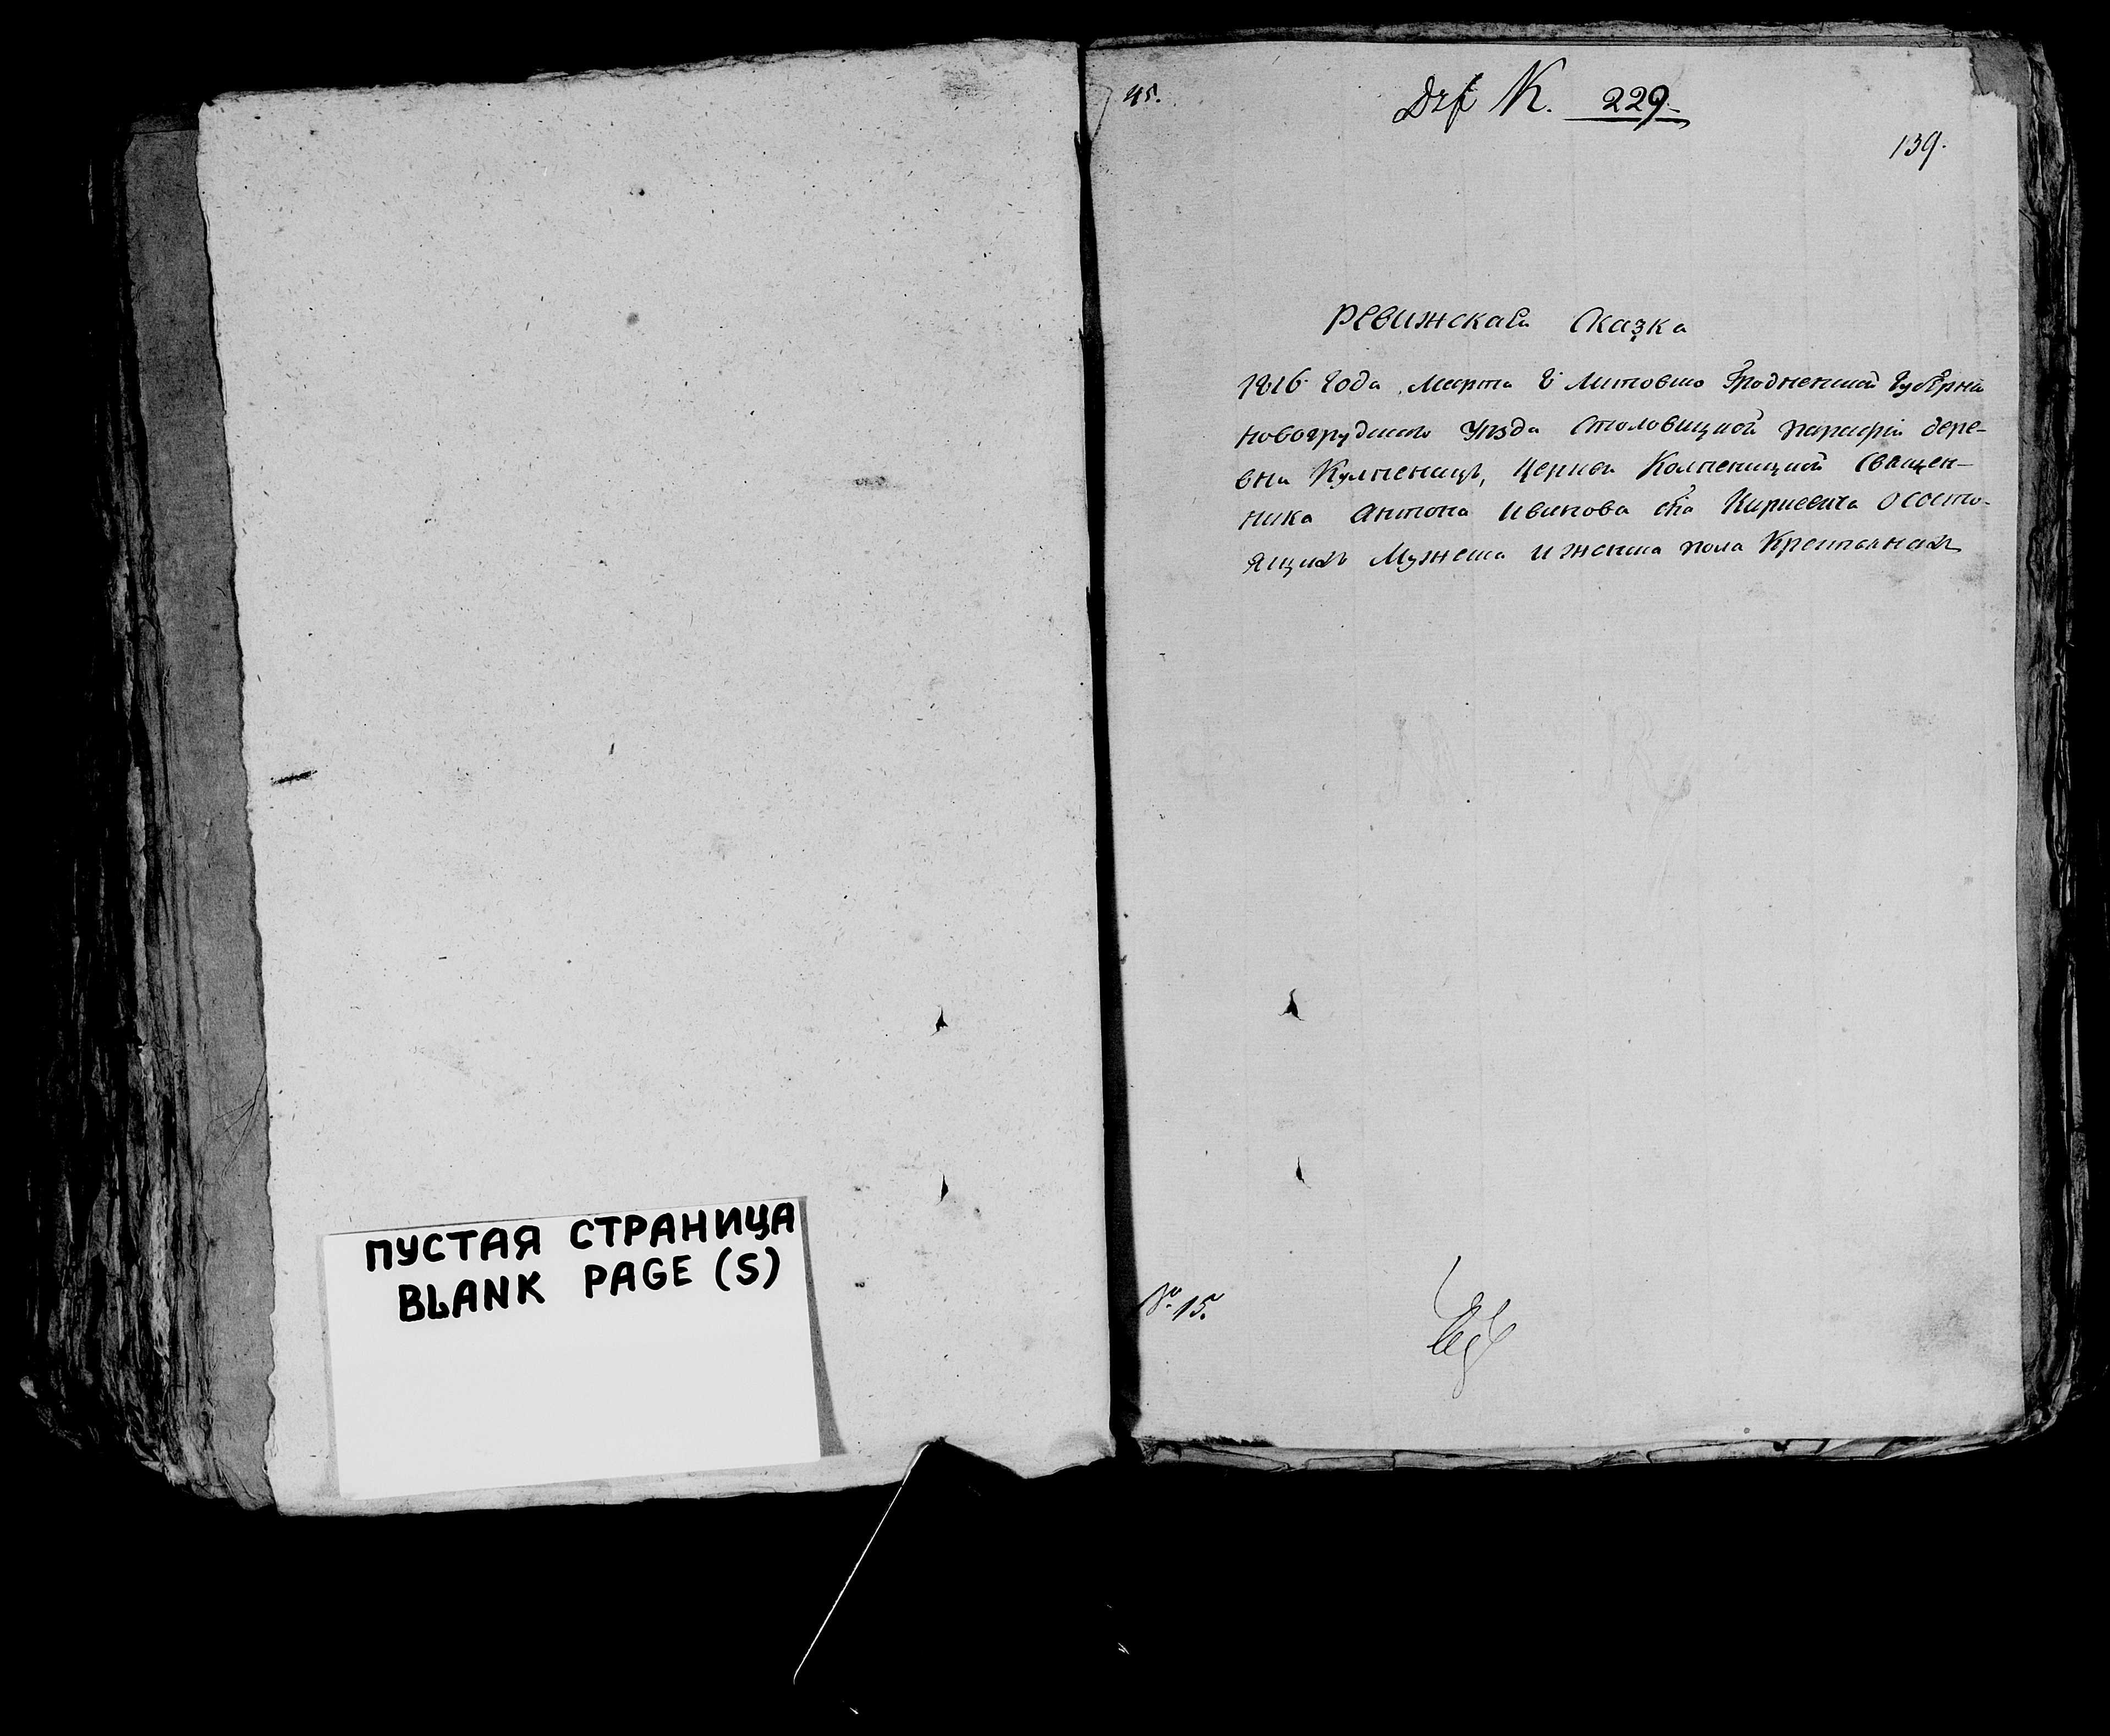 ПУСТАЯ СТРАНИЦА
BLANK PAGE (S)
45.
K. 229.
139.
Ревижская Сказка
1816 года Марта Литовско Гродненской Губернии
Новогрудского Уезда Столовицкой парафіи дере-
вни Кулпеницъ, Церкви Колпеницкой Священ-
ника Антона Иванова сна Киркевича о состо-
ящихъ Мужеска и женска пола Крестьянах
No. 15.